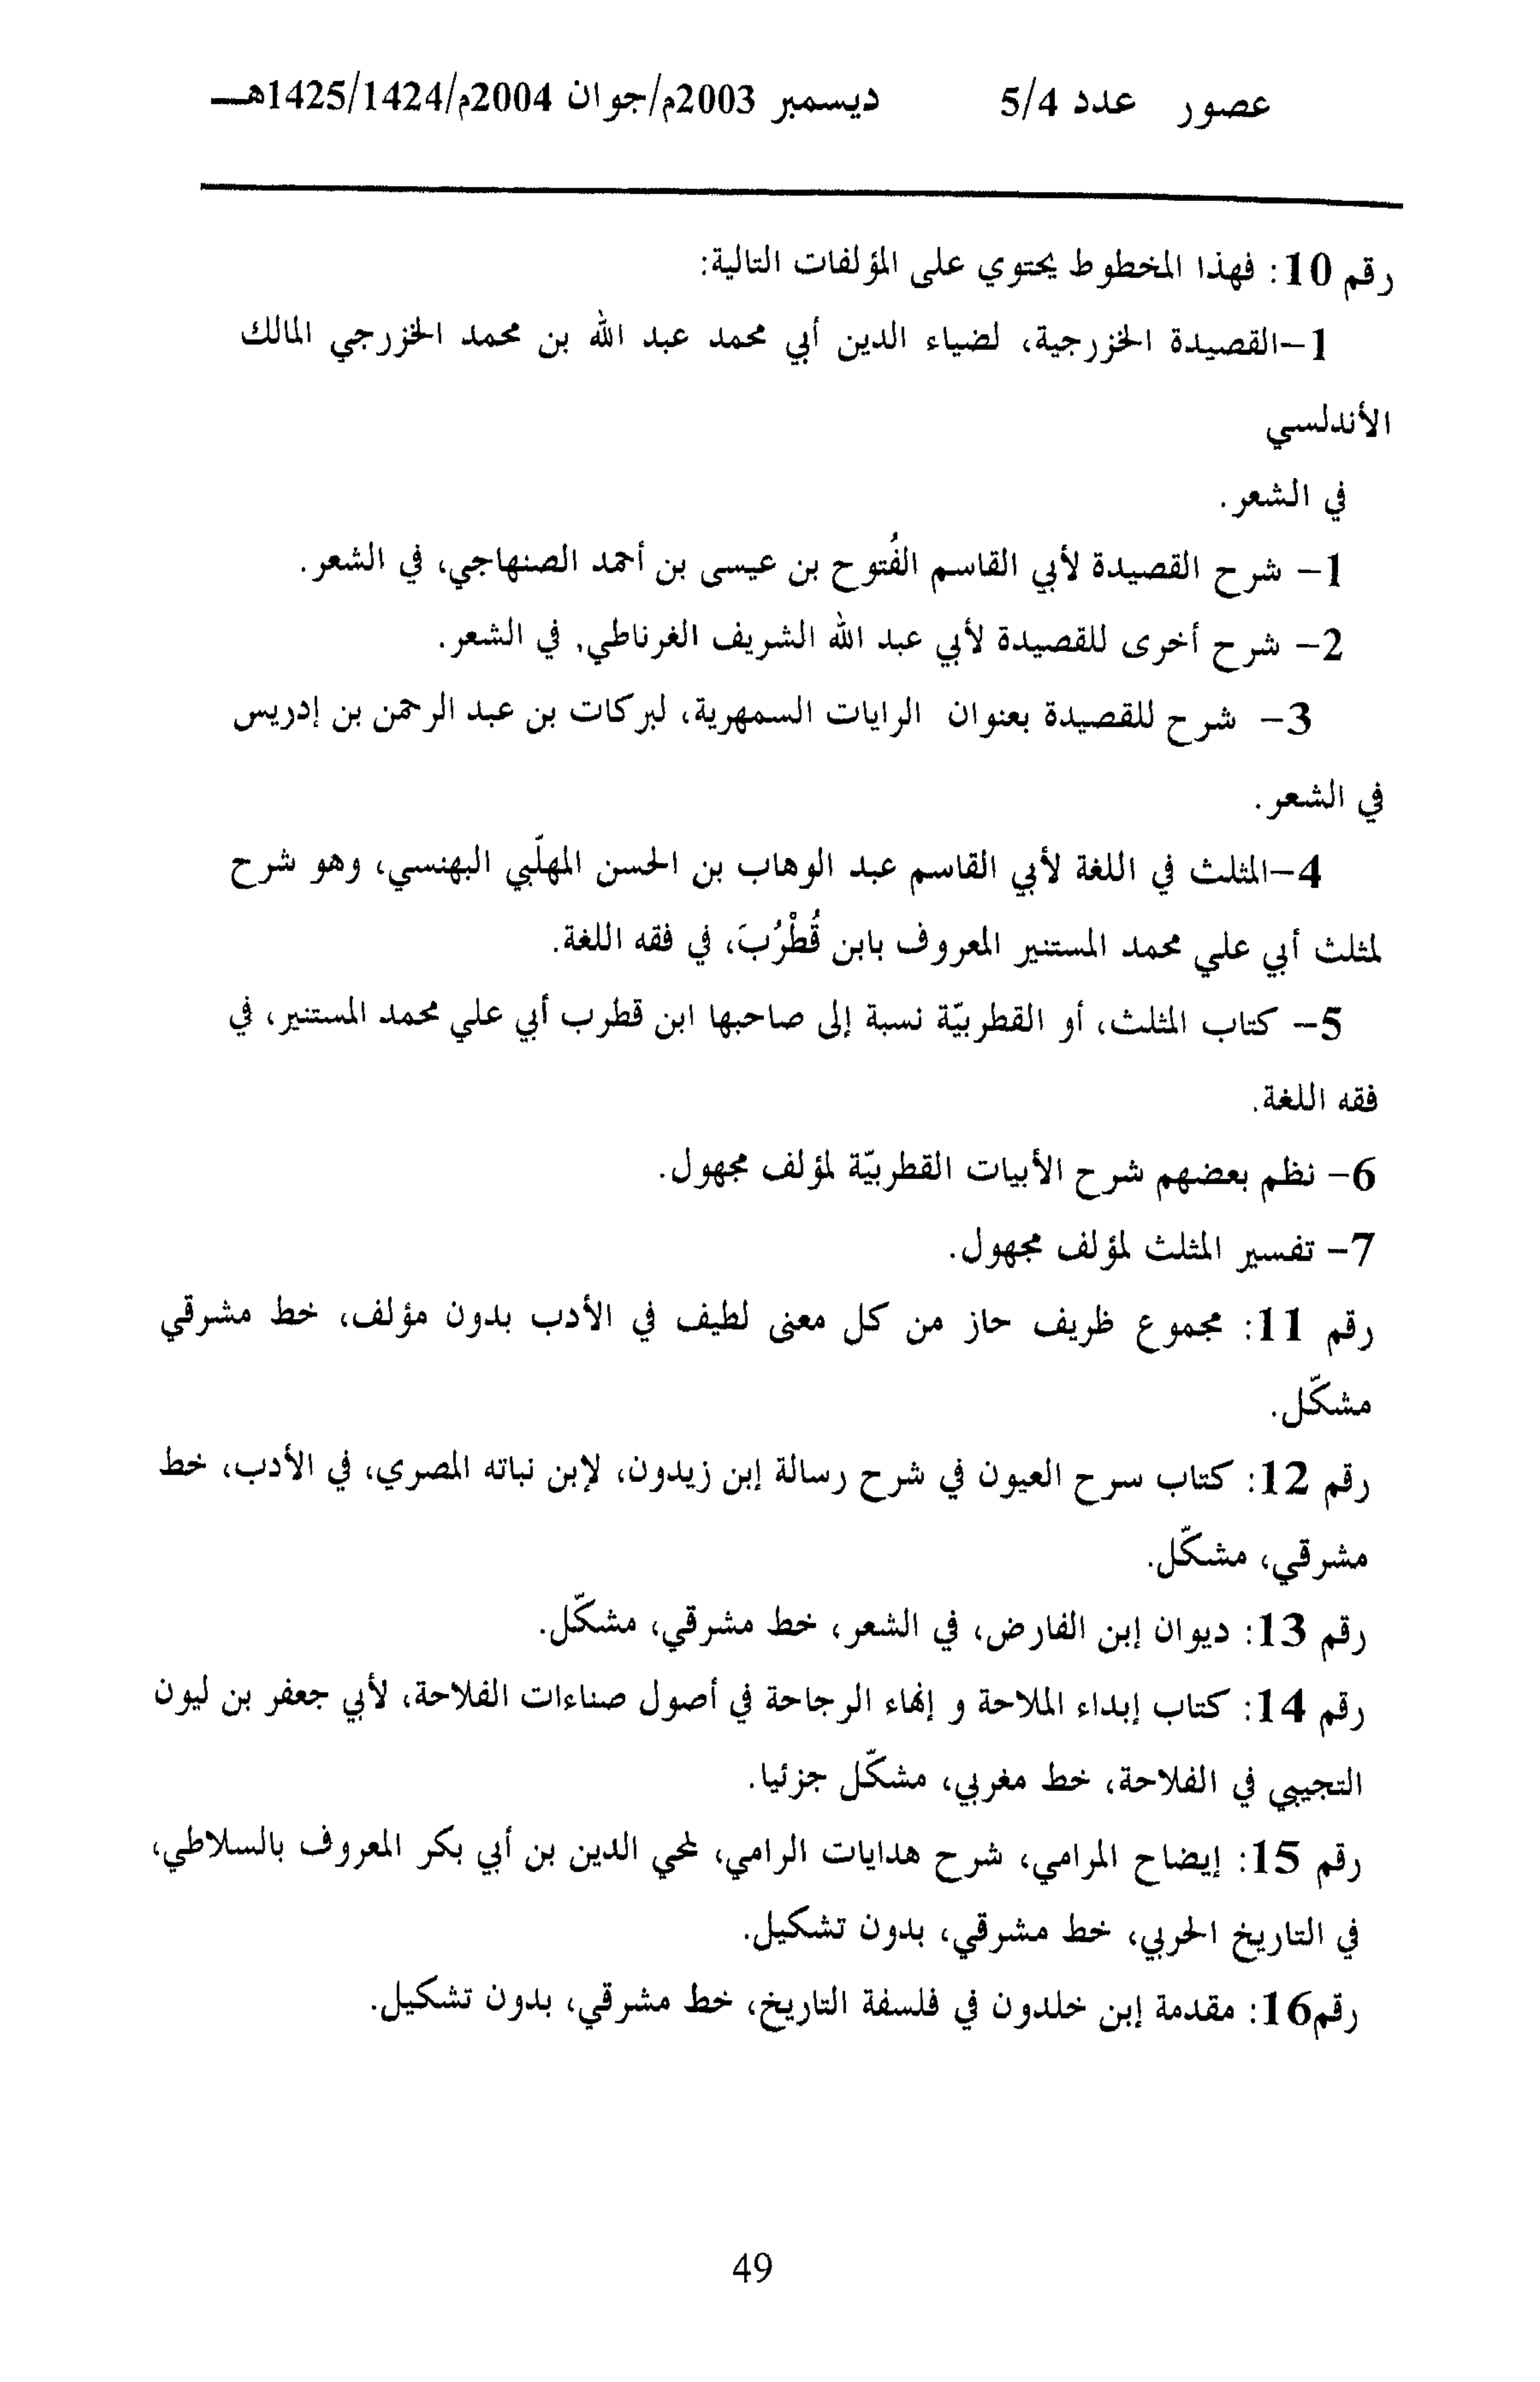 عصور عدد 5/4 ديسمبر 2003م/جوان 2004م/1425/1424هـ
رقم 10: فهذا المخطوط يحتوي على المؤلفات التالية:
1-القصيدة الخزرجية، لضياء الدين أبي محمد عبد الله بن محمد الخزرجي المالك
الأندلسي
في الشعر.
1- شرح القصيدة لأبي القاسم الفُتوح بن عيسى بن أحمد الصنهاجي، في الشعر.
2- شرح أخرى للقصيدة لأبي عبد الله الشريف الغرناطي, في الشعر.
3- شرح للقصيدة بعنوان الرايات السمهرية، لبركات بن عبد الرحمن بن إدريس
في الشعر.
4-المثلث في اللغة لأبي القاسم عبد الوهاب بن الحسن المهلّبي البهنسي، وهو شرح
لمثلث أبي علي محمد المستنير المعروف بابن قُطْرُبَ، في فقه اللغة.
5- كتاب المثلث، أو القطربيّة نسبة إلى صاحبها ابن قطرب أبي علي محمد المستنير، في
فقه اللغة.
6- نظم بعضهم شرح الأبيات القطربيّة لمؤلف مجهول.
7- تفسير المثلث لمؤلف مجهول.
رقم 11: مجموع ظريف حاز من كل معنى لطيف في الأدب بدون مؤلف، خط مشرقي
مشكّل.
رقم 12: كتاب سرح العيون في شرح رسالة إبن زيدون، لإبن نباته المصري، في الأدب، خط
مشرقي، مشكّل.
رقم 13: ديوان إبن الفارض، في الشعر، خط مشرقي، مشكّل.
رقم 14: كتاب إبداء الملاحة و إنهاء الرجاحة في أصول صناءات الفلاحة، لأبي جعفر بن ليون
التجيبي في الفلاحة، خط مغربي، مشكّل جزئيا.
رقم 15: إيضاح المرامي، شرح هدايات الرامي، لمحي الدين بن أبي بكر المعروف بالسلاطي،
في التاريخ الحربي، خط مشرقي، بدون تشكيل.
رقم16: مقدمة إبن خلدون في فلسفة التاريخ، خط مشرقي، بدون تشكيل.
49